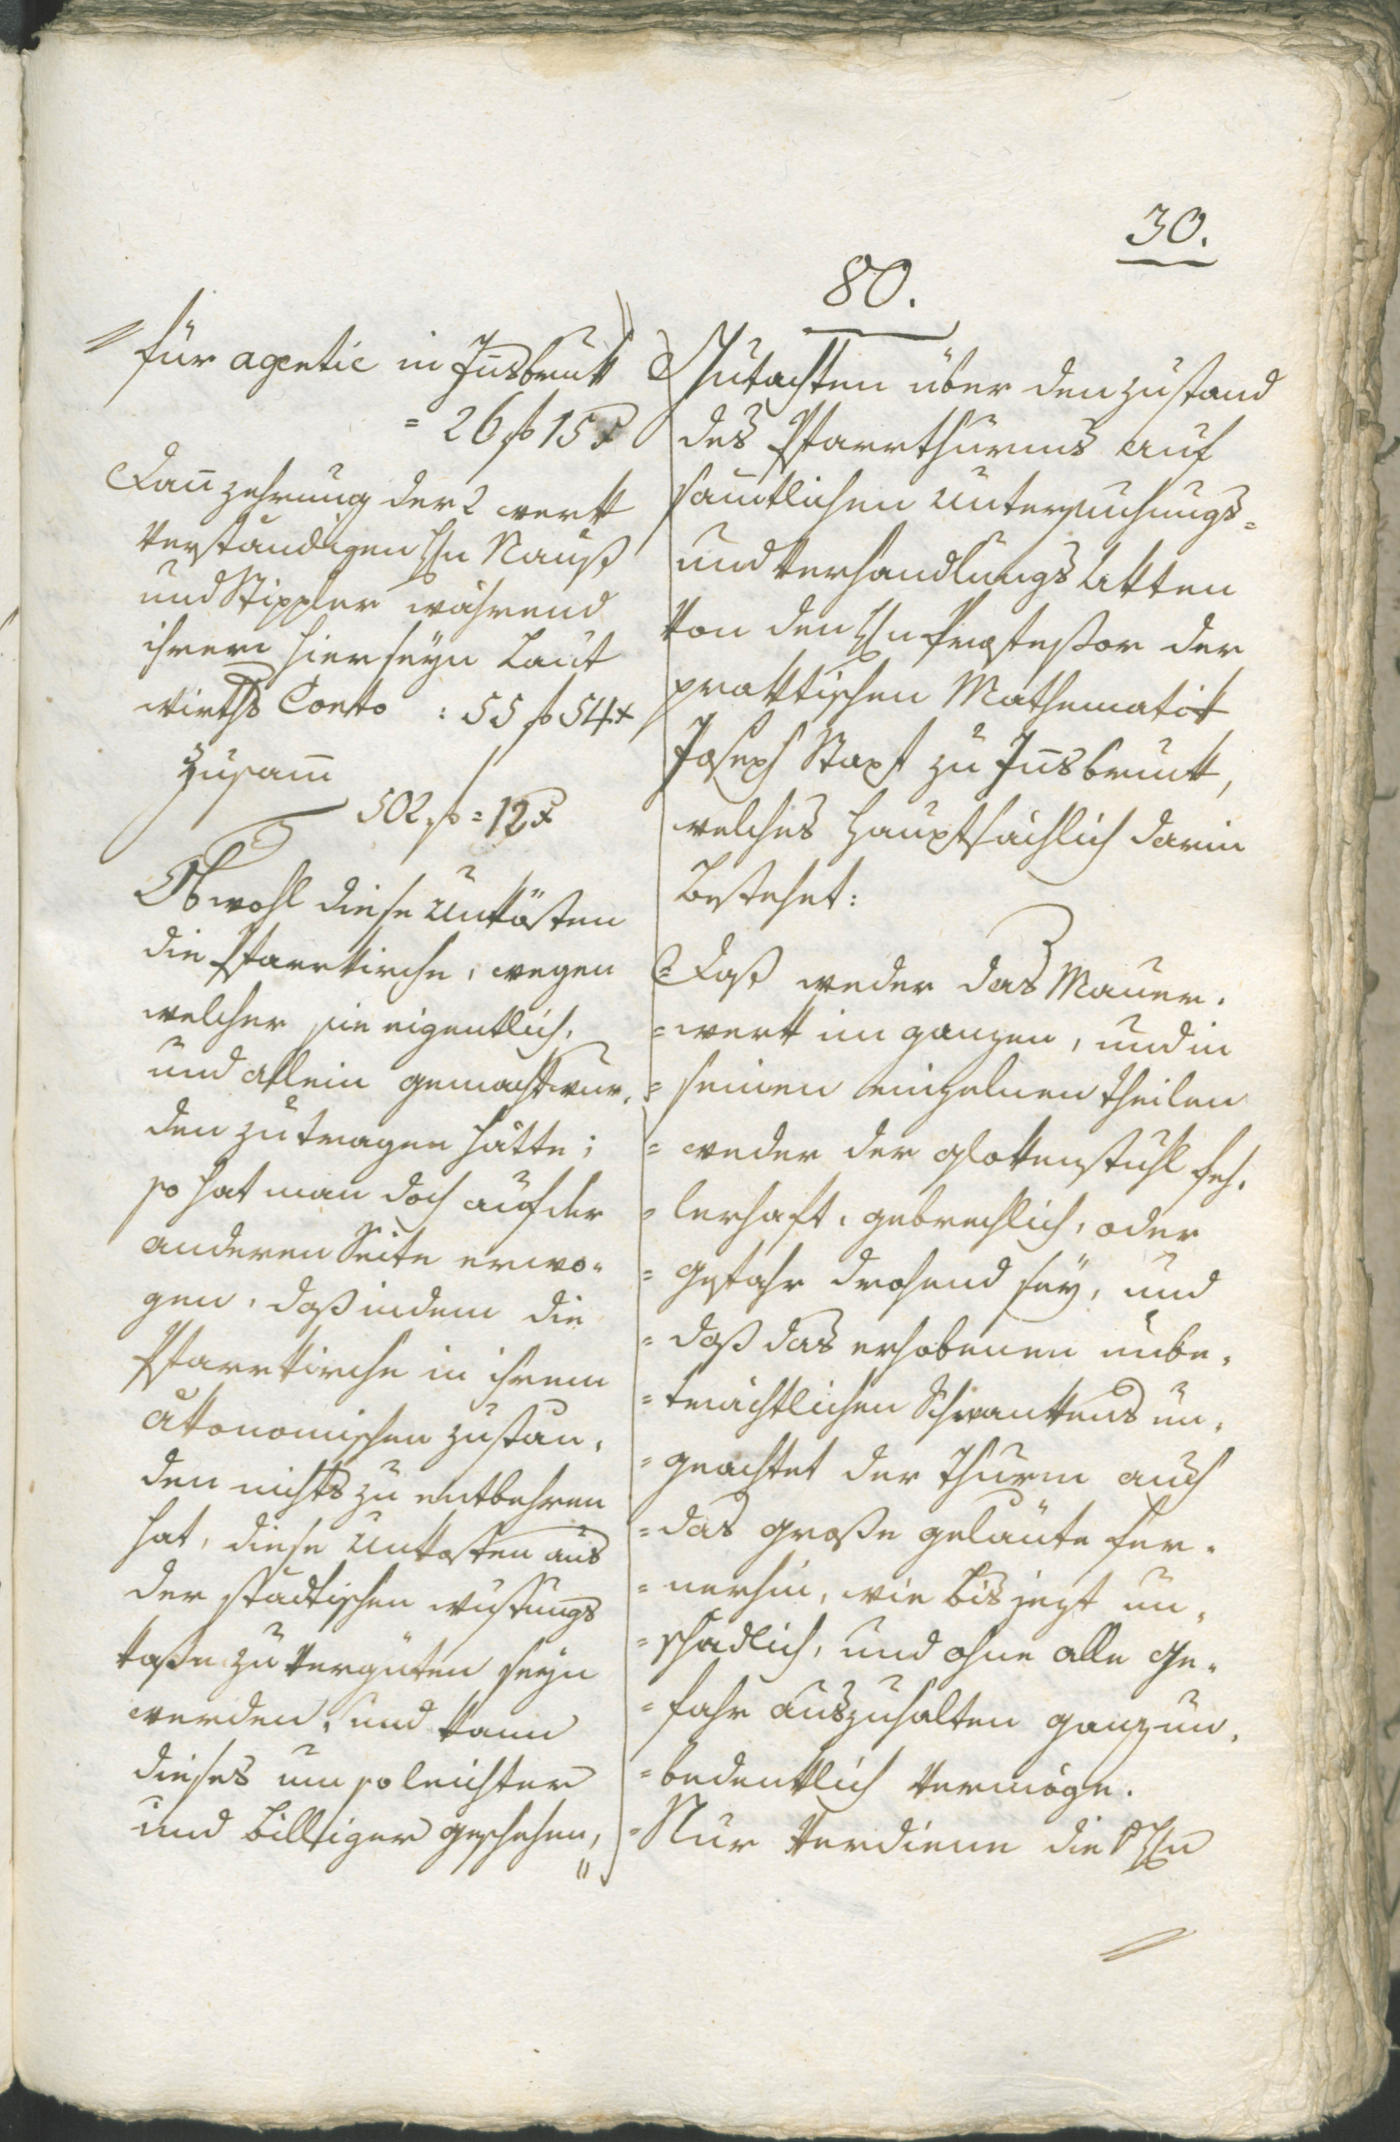 30.
für agentie in Jn̄sbrukk
= 26 f 15 x
Dan̄ zehrung der 2 werk
verständigen Hn Nauß
und Stippler während
ihrem hierseyn Laut
wirths Conto : 55 f 54 x
Zusam̄
502 f = 12 x
Obwohl diese Unkösten
die Pfarrkirche, wegen
welcher sie eigentlich,
und allein gemacht wur,
den zu tragen hätte;
so hat man doch auf der
anderen Seite erwo,
gen, daß indem die
Pfarrkirche in ihrem
ökonomischen zustan,
den nichts zu entbehren
hat, diese Unkosten aus
der städtischen
kaße zu vergüten seyn
werden, und kann
dieses um so leichter
und billiger geschehen,
80.
Gutachten über den zustand
des Pfarrthurms auf
sam̄tlichen Untersuchungs=
und Verhandlungs Akten
von den Hn Profeßor der
praktischen Mathematik
Joseph Stapf zu Jn̄sbrukk,
welches hauptsächlich darin
bestehet:
= Daß weder das Mauer,
= werk im ganzen, und in
= seinen einzelnen theilen
= weder der glokenstuhl feh,
= lerhaft, gebrechlich, oder
= gefahr drohend sey, und
= daß das erhobenen unbe,
= trächtlichen Schwankens un,
= geachtet der Thurm auch
= das große geläute fer,
= nerhin, wie bis jezt un,
= schadlich, und ohne alle ge,
= fahr auszuhalten ganz un,
= bedenklich vermöge.
= Nur verdiene die